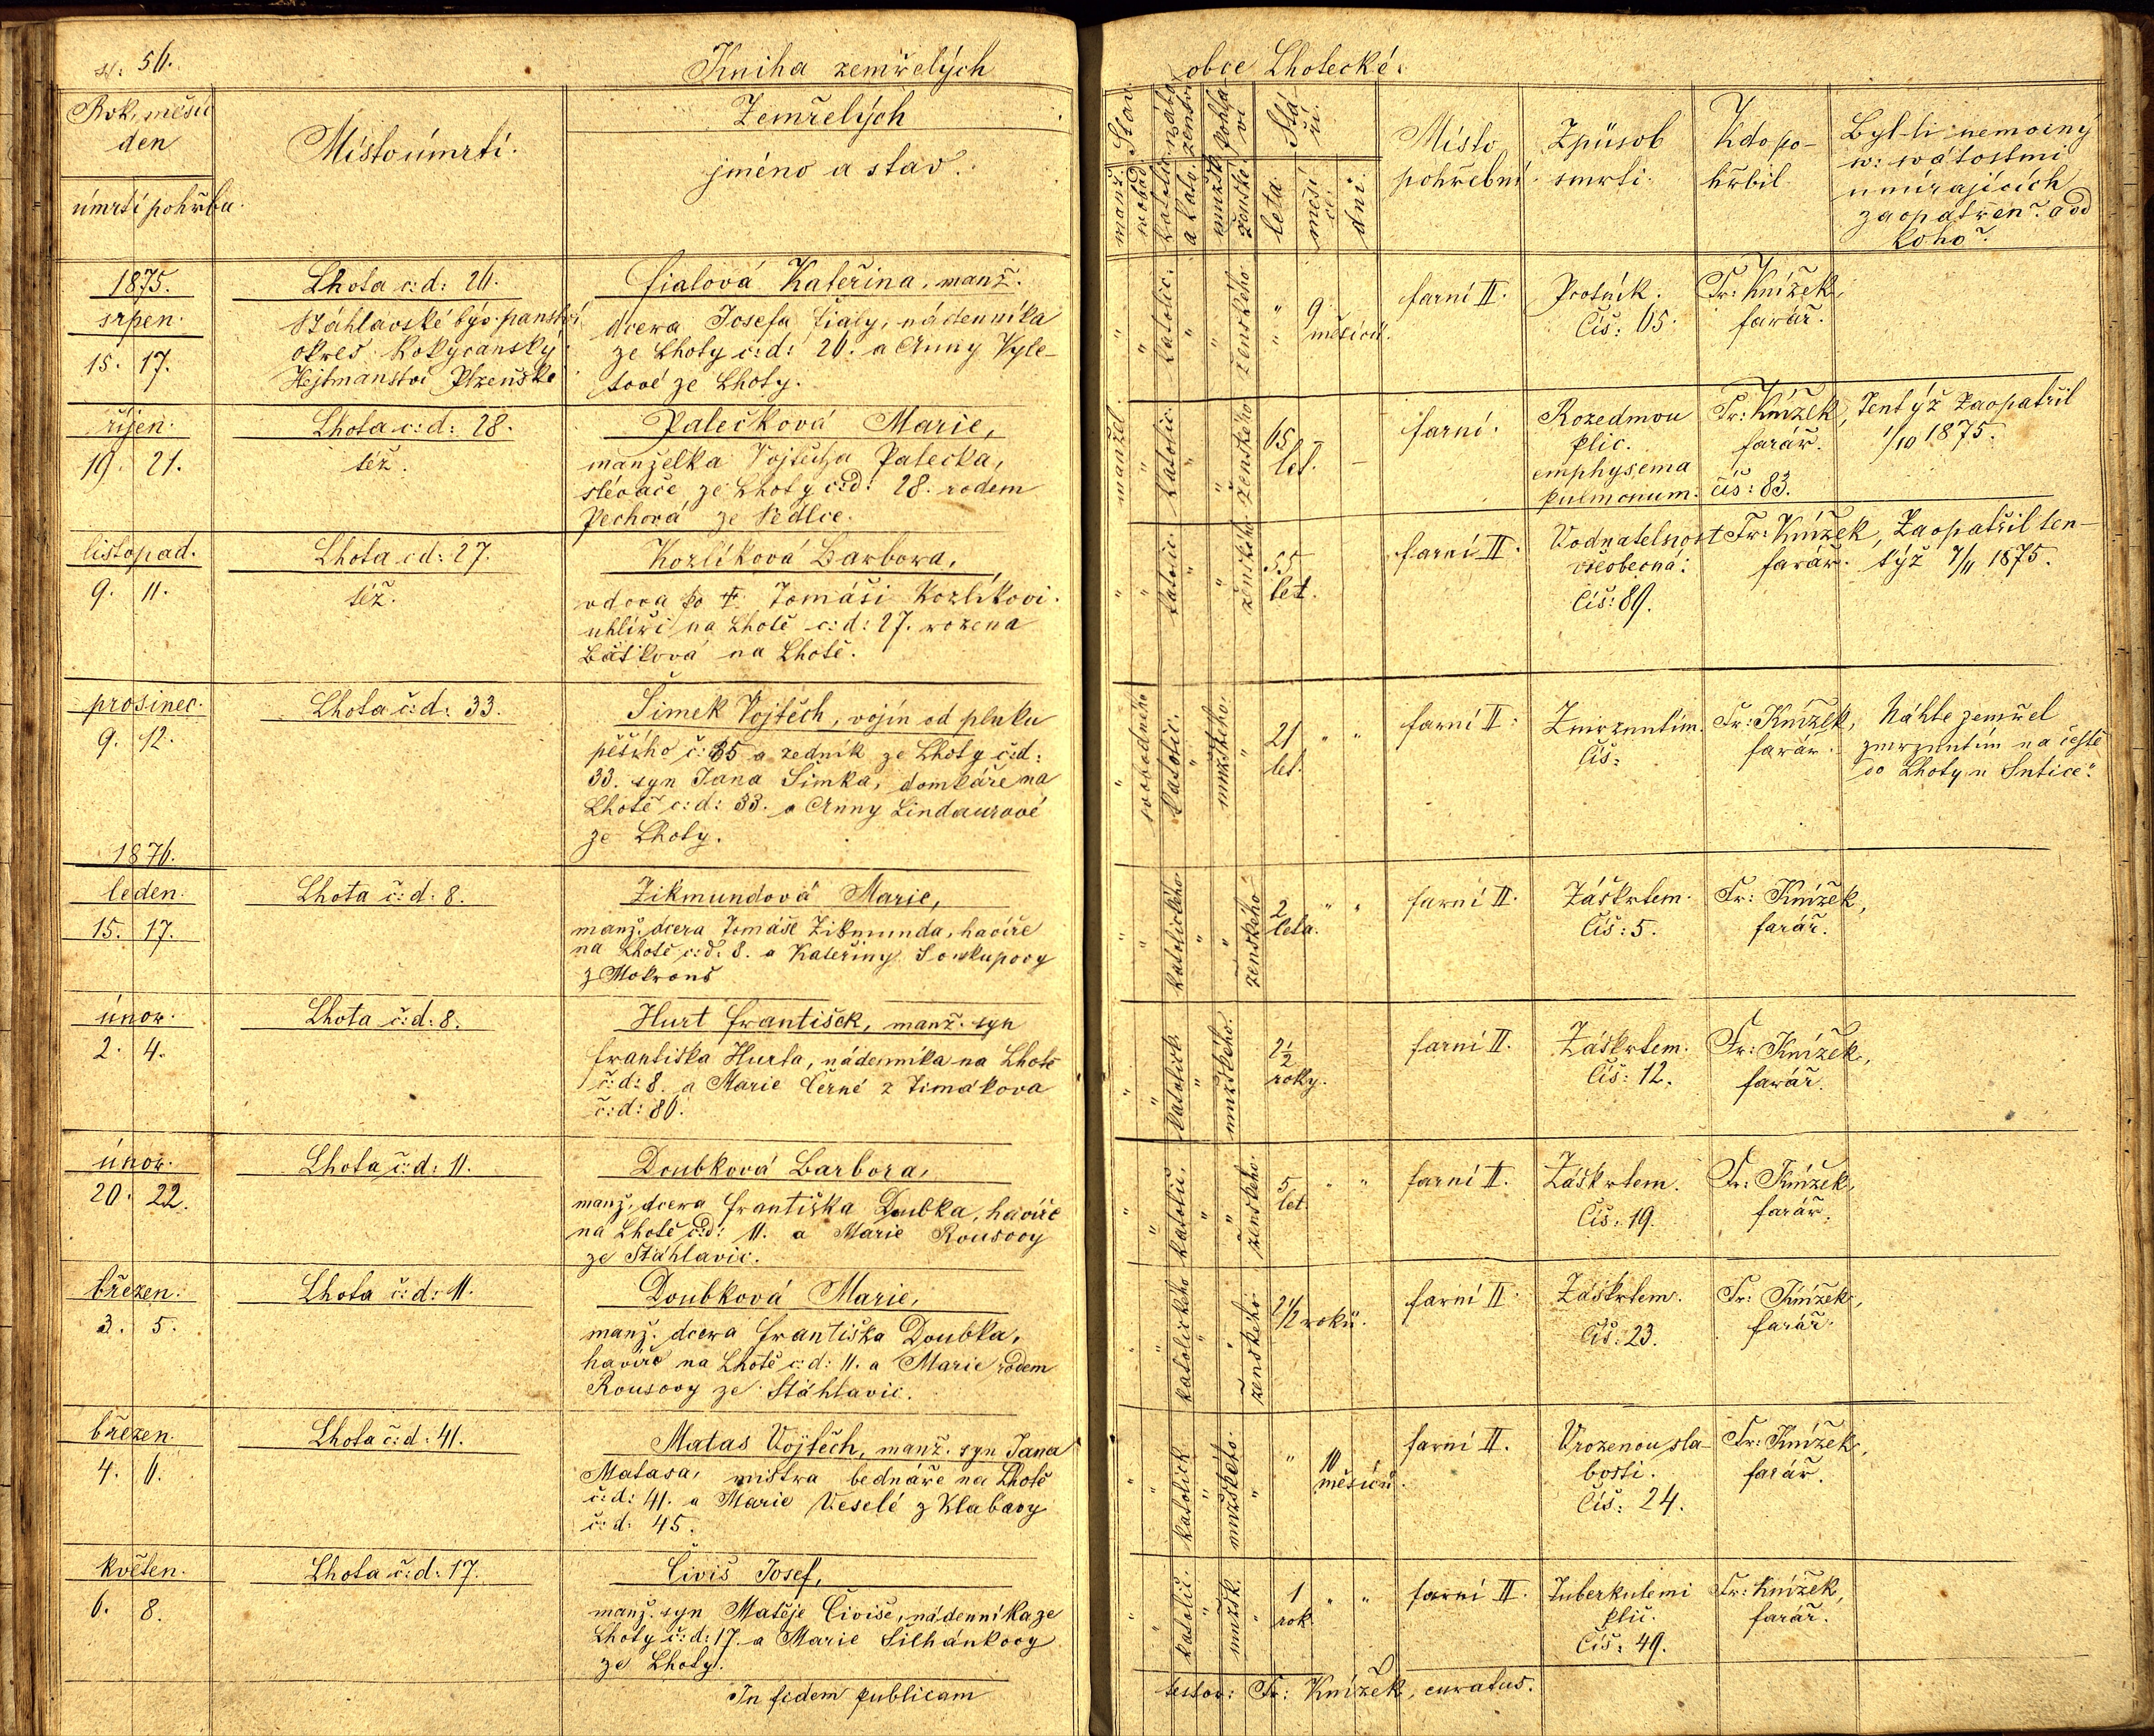 str: 56.
Kniha zemřelých
obce Lhotecké.
Rok, měsíc
den
úmrtí pohřbu.
Místo úmrtí.
Zemřelých
jméno a stav.
Stáří.
leta.
měsíců
dní.
Místo
pohřební.
Způsob
smrti.
Kdo po-
hřbil.
Byl-li nemocný
sv: svátostmi
umírajících
zaopatřen? a od
koho?
1875.
srpen.
15. 17.
Lhota č:d: 26.
Šťáhlavské býv. panství
okres Rokycanský
Hejtmanství Plzeňské
Fialová Kateřina, manž.
dcera Josefa Fialy, nádenníka
ze Lhoty č:d: 26. a Anny Vyle-
tové ze Lhoty.
" " katolic: " " ženského " 9 měsíců.
farní II.
Psotník.
Čís: 65.
Fr: Knížek,
farář.
říjen.
19. 21.
Lhota č:d: 28.
též.
Palečková Marie,
manželka Vojtěcha Palečka,
slévače ze Lhoty č:d: 28. rodem
Pechová ze Sedlce.
manžel. " katolic: " " ženského 65 let. –
farní.
Rozedmou
plic.
emphysema
pulmonum.
Fr: Knížek,
farář.
čís: 83.
Tentýž zaopatřil
1/10 1875.
listopad.
9. 11.
Lhota čd: 27.
též.
Kozlíková Barbora,
vdova po † Tomáši Kozlíkovi
uhlíři na Lhotě č:d: 27. rozená
Bašková na Lhotě.
" " katolic: " " ženského 55 let.
farní II.
Vodnatelnost
všeobecná.
Čís: 89.
Fr: Knížek,
farář.
Zaopatřil ten-
týž 7/11 1875.
prosinec.
9. 12.
Lhota č:d: 33.
Šimek Vojtěch, vojín od pluku
pěšího č: 35 a zedník ze Lhoty č:d:
33. syn Jana Šimka, domkáře na
Lhotě č:d: 33. a Anny Lindaurové
ze Lhoty.
" svobodného katolic: " mužského. " 21 let. " "
farní II.
Zmrznutím.
Čís:
Fr: Knížek,
farář.
Náhle zemřel
zmrznutím na cestě
do Lhoty u Sutice.
1876.
leden.
15. 17.
Lhota č:d: 8.
Zikmundová Marie,
manž. dcera Tomáše Zikmunda, havíře
na Lhotě č:d: 8. a Kateřiny Soukupovy
z Mokrouš
" " katolického " " ženského 2 leta. " "
farní II.
Záškrtem.
Čís: 5.
Fr: Knížek,
farář.
únor.
2. 4.
Lhota č:d: 8.
Hurt František, manž. syn
Františka Hurta, nádenníka na Lhotě
č:d: 8. a Marie Černé z Timákova
č:d: 86.
" " katolick. " mužského. 2½ roky.
farní II.
Záškrtem.
Čís: 12.
Fr: Knížek,
farář.
únor.
20. 22.
Lhota č:d: 11.
Doubková Barbora,
manž. dcera Františka Doubka, havíře
na Lhotě č:d: 11. a Marie Rousovy
ze Šťáhlavic.
" " katolic. " " ženského. 5 let. " "
farní II.
Záškrtem.
Čís: 19.
Fr: Knížek,
farář.
březen.
3. 5.
Lhota č:d: 11.
Doubková Marie,
manž. dcera Františka Doubka,
havíře na Lhotě č:d: 11. a Marie rodem
Rousovy ze Šťáhlavic.
" " katolického " " ženského. 2½ roků.
farní II.
Záškrtem.
Čís: 23.
Fr: Knížek,
farář.
březen.
4. 6.
Lhota č:d: 41.
Matas Vojtěch, manž. syn Jana
Matasa, mistra bednáře na Lhotě
č:d: 41. a Marie Veselé z Klabavy
č:d: 45.
" " katolick " mužského. " " 10 měsíců.
farní II.
Vrozenou sla-
bostí.
Čís: 24.
Fr: Knížek,
farář.
květen.
6. 8.
Lhota č:d: 17.
Čiviš Josef,
manž. syn Matěje Čiviše, nádenníka ze
Lhoty č:d: 17. a Marie Šilhánkovy
ze Lhoty.
" " katolic. " mužsk. " 1 rok. " "
farní II.
Tuberkulemi
plic.
Čís: 49.
Fr: Knížek,
farář.
In fidem publicam
testor: Fr: Knížek, curatus.